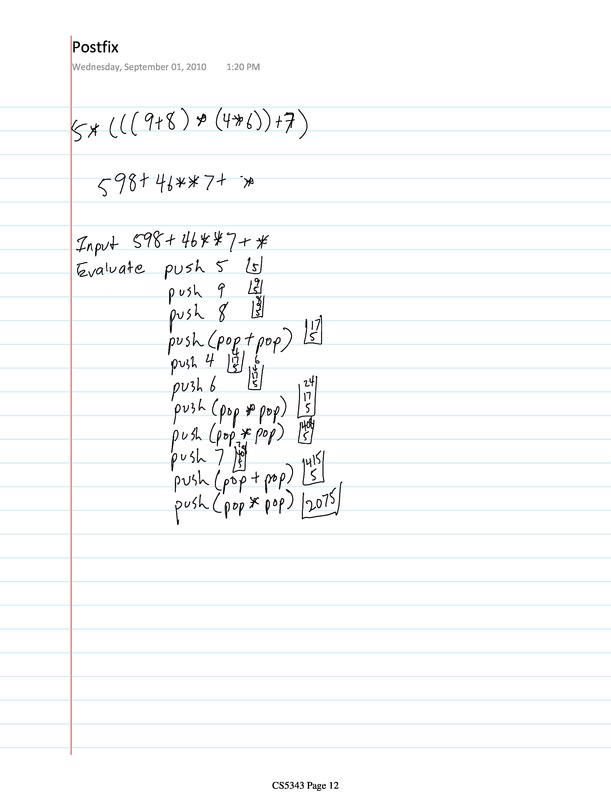 Postfix
Wednesday, September 01, 2010 1:20 PM
5*(((9+8)*(4*6))+7)
598+46**7+ *
Input 598+46**7+*
Evaluate push 5 5
push 9 9 5
push 8 8 9 5
push(pop+pop) 17 5
push 4 4 17 5
push 6 6 4 17 5
push(pop*pop) 24 17 5
push(pop*pop) 408 5
push 7 7 408 5
push(pop+pop) 415 5
push(pop*pop) 2075
CS5343 Page 12